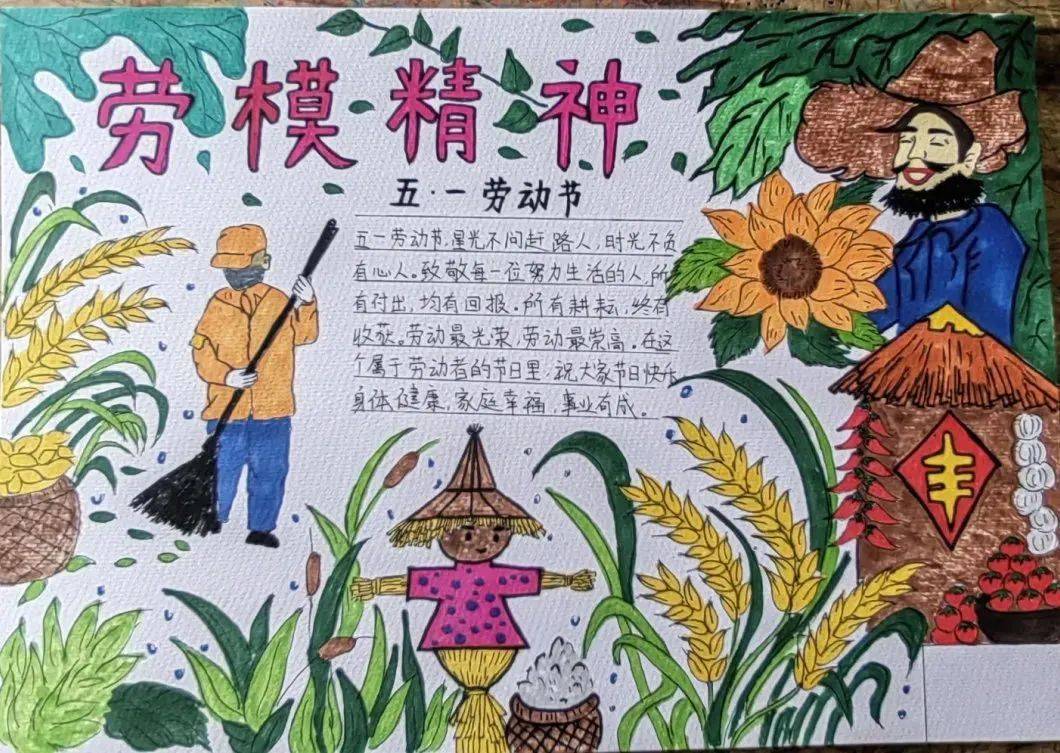 劳模精神
五·一劳动节
五一劳动节,星光不问赶路人,时光不负
有心人。致敬每一位努力生活的人,所
有付出,均有回报。所有耕耘,终有
收获。劳动最光荣,劳动最崇高。在这
个属于劳动者的节日里,祝大家节日快乐
身体健康,家庭幸福,事业有成。
丰